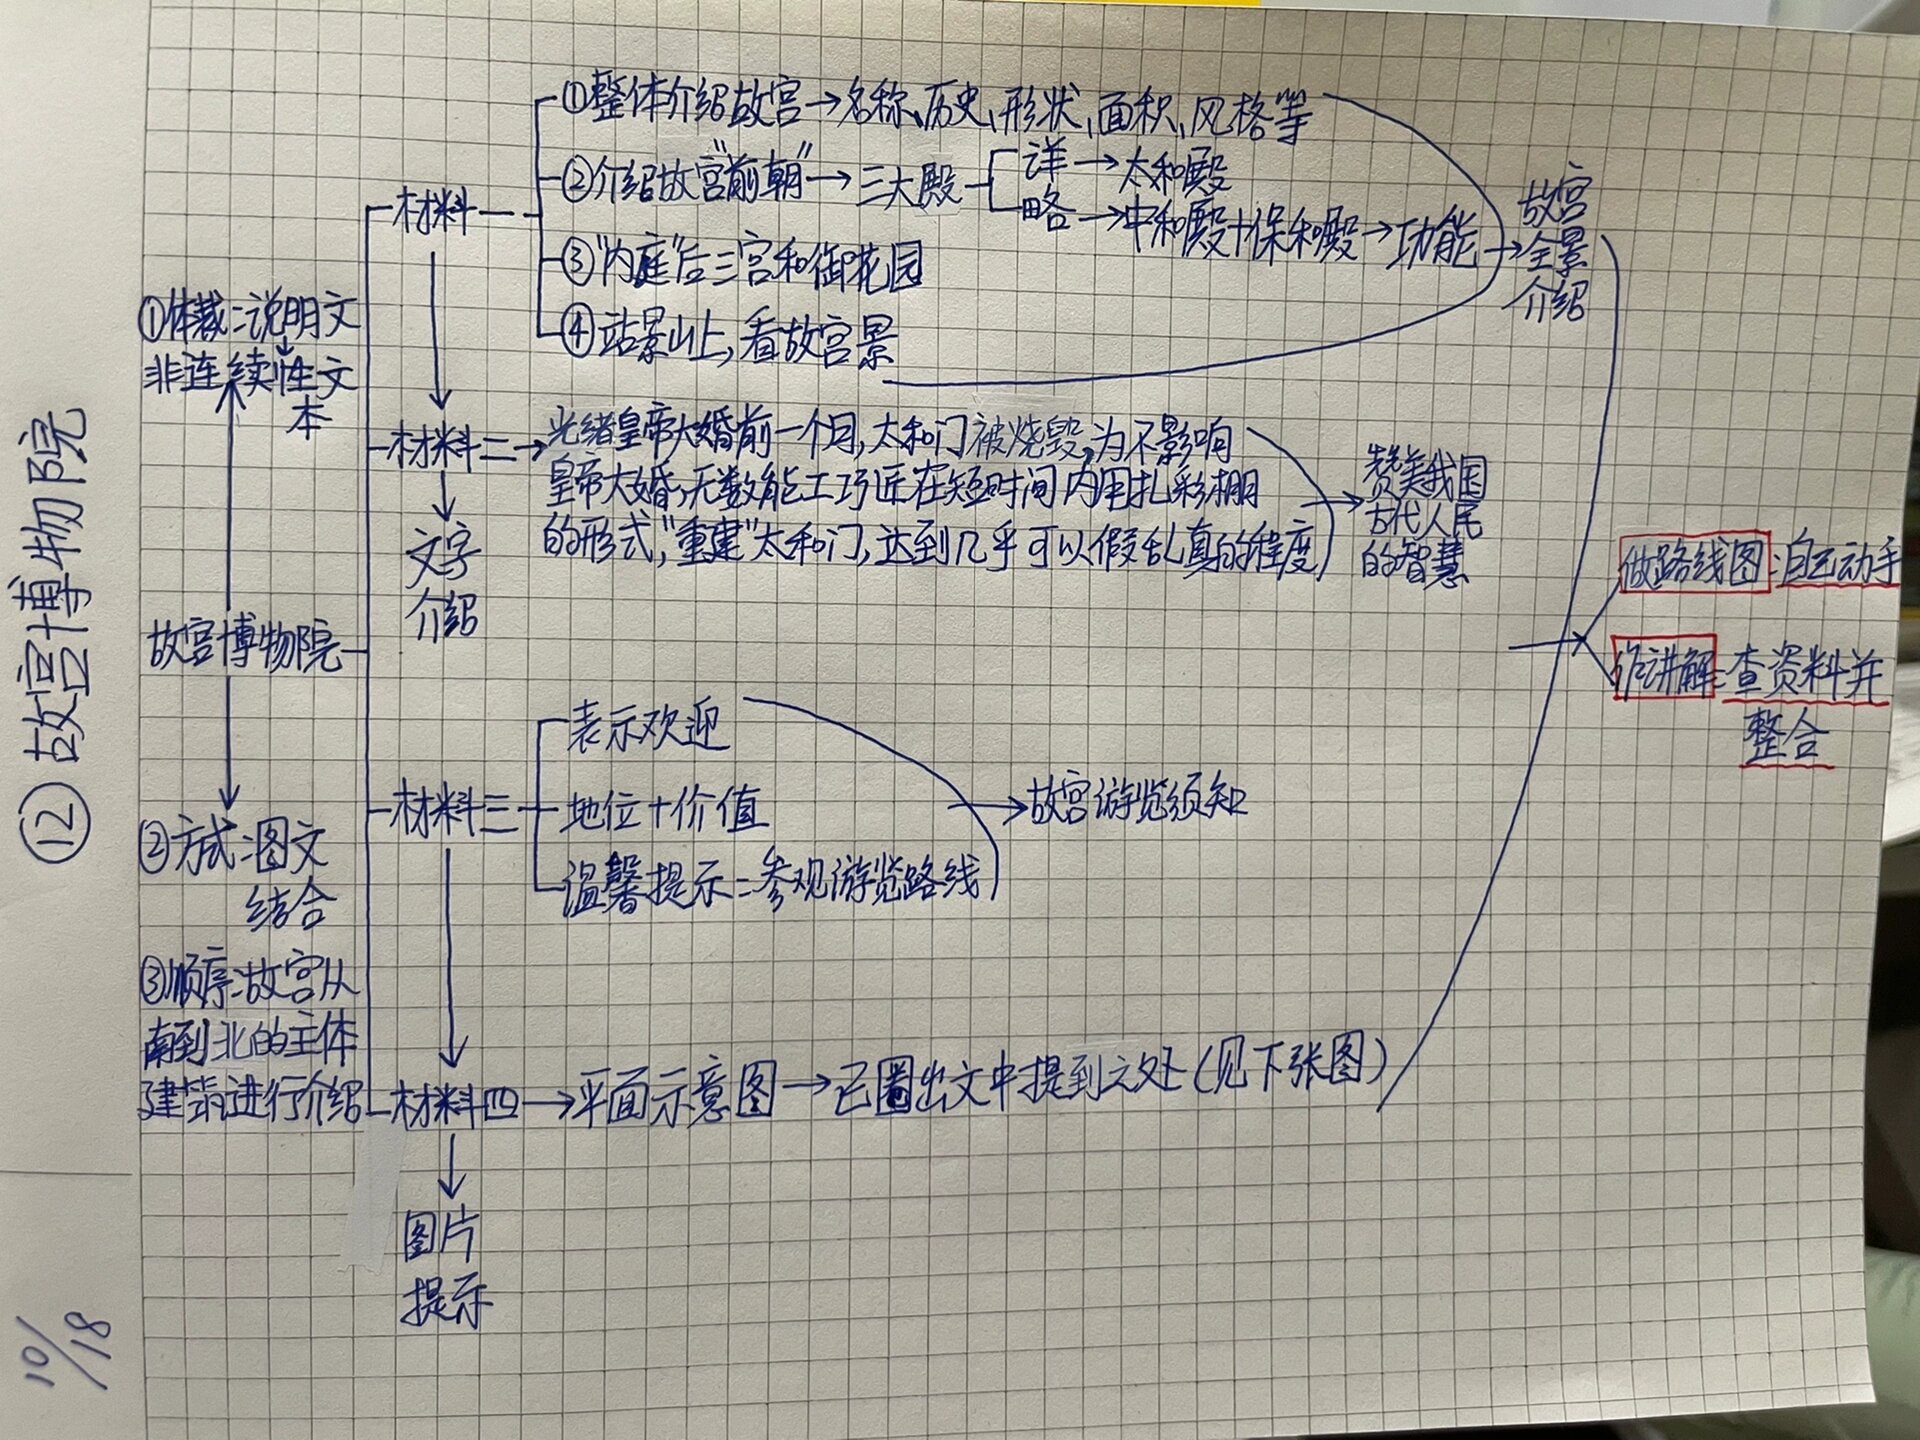 ⑫故宫博物院
10/18
①体裁:说明文
非连续性文
本
故宫博物院
②方式:图文
结合
③顺序:故宫从
南到北的主体
建筑进行介绍
材料一
①整体介绍故宫→名称、历史、形状、面积、风格等
②介绍故宫"前朝"→三大殿
详→太和殿
略→中和殿+保和殿→功能
③"内庭"后三宫和御花园
④站景山上,看故宫景
故宫
全景
介绍
材料二→
光绪皇帝大婚前一个月,太和门被烧毁,为不影响
皇帝大婚,无数能工巧匠在短时间内用扎彩棚
的形式,"重建"太和门,达到几乎可以假乱真的程度
赞美我国
古代人民
的智慧
文字
介绍
材料三
表示欢迎
地位+价值
温馨提示:参观游览路线
故宫游览须知
材料四→平面示意图→已圈出文中提到之处(见下张图)
图片
提示
做路线图:自己动手
作讲解:查资料并
整合